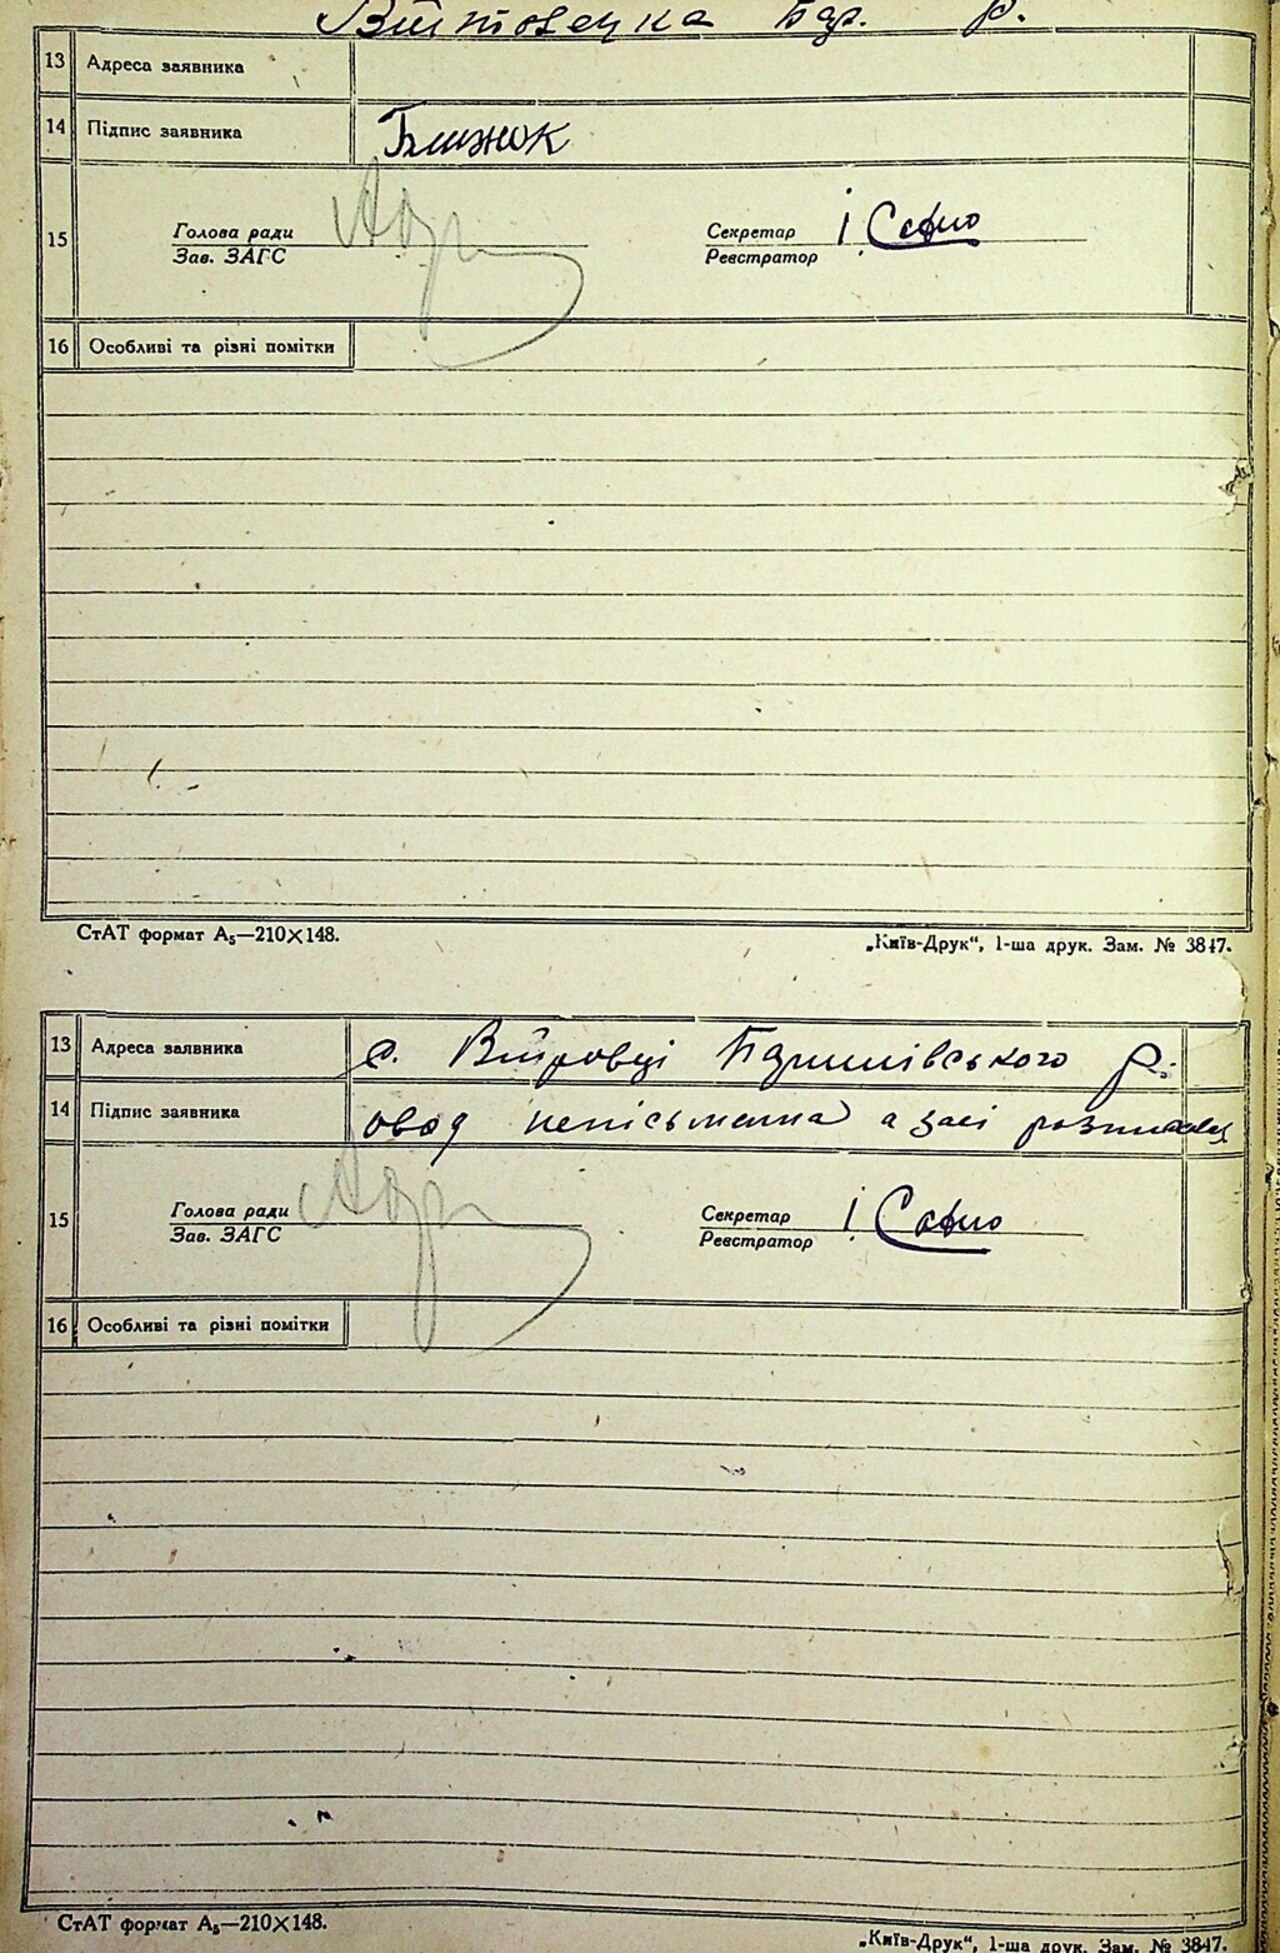 13 Адреса заявника
14 Підпис заявника Ближок
15 Голова ради Секретар І. Сафно
Зав. ЗАГС Реєстратор
16 Особливі та різні помітки
СтАТ формат А5—210×148. „Київ-Друк“, 1-ша друк. Зам. № 3847.
13 Адреса заявника с. Війтовці р.
14 Підпис заявника непісьменна а заєї
15 Голова ради Секретар І. Сафно
Зав. ЗАГС Реєстратор
16 Особливі та різні помітки
СтАТ формат А5—210×148.
„Київ-Друк“, 1-ша друк. Зам. № 3847.